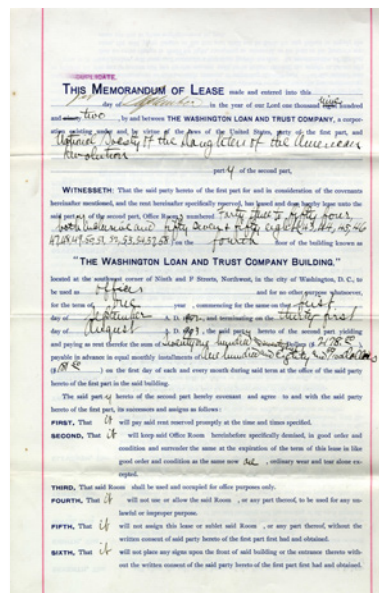 DUPLICATE.
THIS MEMORANDUM OF LEASE made and entered into this
day of September in the year of our Lord one thousand nine hundred
and two, by and between THE WASHINGTON LOAN AND TRUST COMPANY, a corpor-
ation existing under and by virtue of the laws of the United States, party of the first part, and
National Society of the Daughters of the American
Revolution
party of the second part,
WITNESSETH: That the said party hereto of the first part for and in consideration of the covenants
hereinafter mentioned, and the rent hereinafter specifically reserved, has leased and does hereby lease unto the
said party of the second part, Office Rooms numbered Forty three to fifty four,
both inclusive and fifty seven & fifty eight (43, 44, 45, 46
47, 48, 49, 50, 51, 52, 53, 54, 57, 58) on the fourth floor of the building known as
"THE WASHINGTON LOAN AND TRUST COMPANY BUILDING,"
located at the southwest corner of Ninth and F Streets, Northwest, in the city of Washington, D. C., to
be used as offices and for no other purpose whatsoever,
for the term of one year, commencing for the same on the first
day of September A. D. 1902, and terminating on the thirty first
day of August A. D. 1903, the said party hereto of the second part yielding
and paying as rent therefor the sum of
payable in advance in equal monthly installments of One hundred & eighty
on the first day of each and every month during said term at the office of the said party
hereto of the first part in the said building.
The said party hereto of the second part hereby covenant and agree to and with the said party
hereto of the first part, its successors and assigns as follows:
FIRST, That it will pay said rent reserved promptly at the time and times specified.
SECOND, That it will keep said Office Room hereinbefore specifically demised, in good order and
condition and surrender the same at the expiration of the term of this lease in like
good order and condition as the same now are, ordinary wear and tear alone ex-
cepted.
THIRD, That said Room shall be used and occupied for office purposes only.
FOURTH, That it will not use or allow the said Room , or any part thereof, to be used for any un-
lawful or improper purpose.
FIFTH, That it will not assign this lease or sublet said Room , or any part thereof, without the
written consent of the said party hereto of the first part first had and obtained.
SIXTH, That it will not place any signs upon the front of said building or the entrance thereto with-
out the written consent of the said party hereto of the first part first had and obtained.